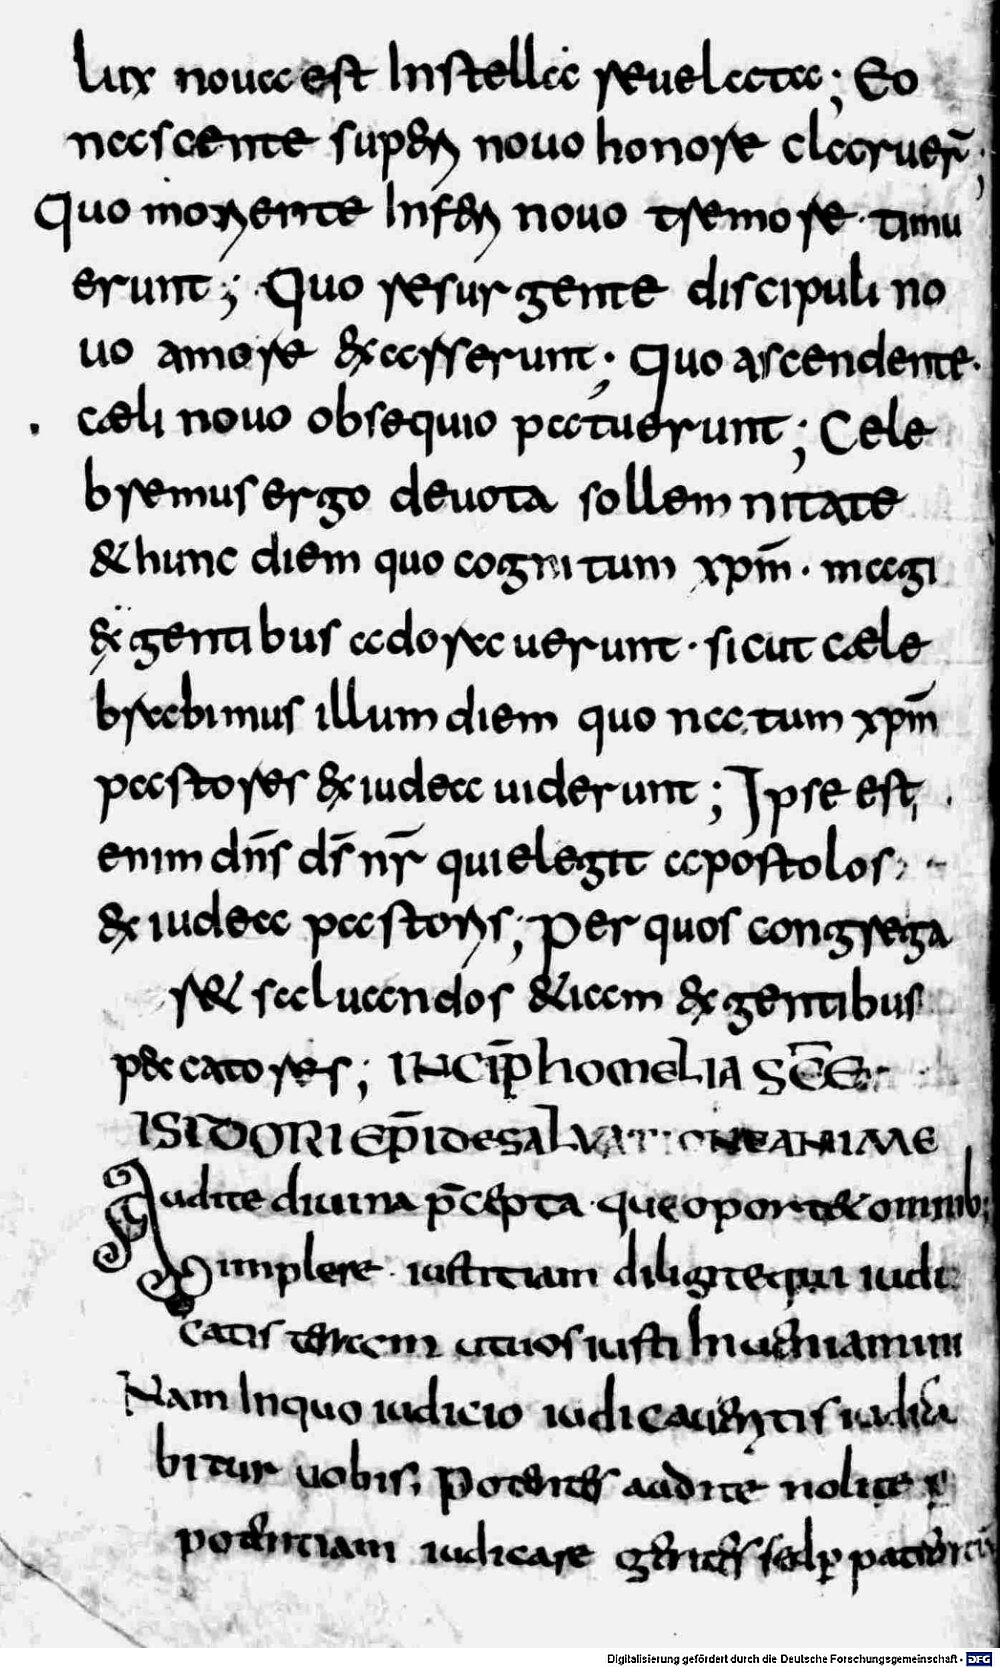 lux noua est In stella reuelata; Eo
nascente superi nouo honore claruer̄;
Quo moriente Inferi nouo tremore timu
erunt; Quo resurgente discipuli no
uo amore exarserunt; Quo ascendente
cæli nouo obsequio patuerunt; Cele
bremus ergo deuota sollemnitate
& hunc diem quo cognitum xp̄m · magi
ex gentibus adorauerunt · sicut cæle
brabimus illum diem quo natum xp̄m
pastores ex iudea uiderunt; Ipse est
enim dn̄s ds̄ nr̄ qui elegit apostolos
ex iudea pastores; Per quos congrega
r& saluandos &iam ex gentibus
peccatores; INCIP̄ hOMELIA SC̄E
ISIDORI EP̄I DE SALVATIONE ANIME
Audite diuina p̄cepta · que oport& omnib;
implere · iustitiam diligite qui iudi
catis terram ut uos iusti Inueniamini
Nam In quo iudicio iudicaueritis iudica
bitur uobis. Potentes audite nolite p
potentiam iudicare gentes sed p